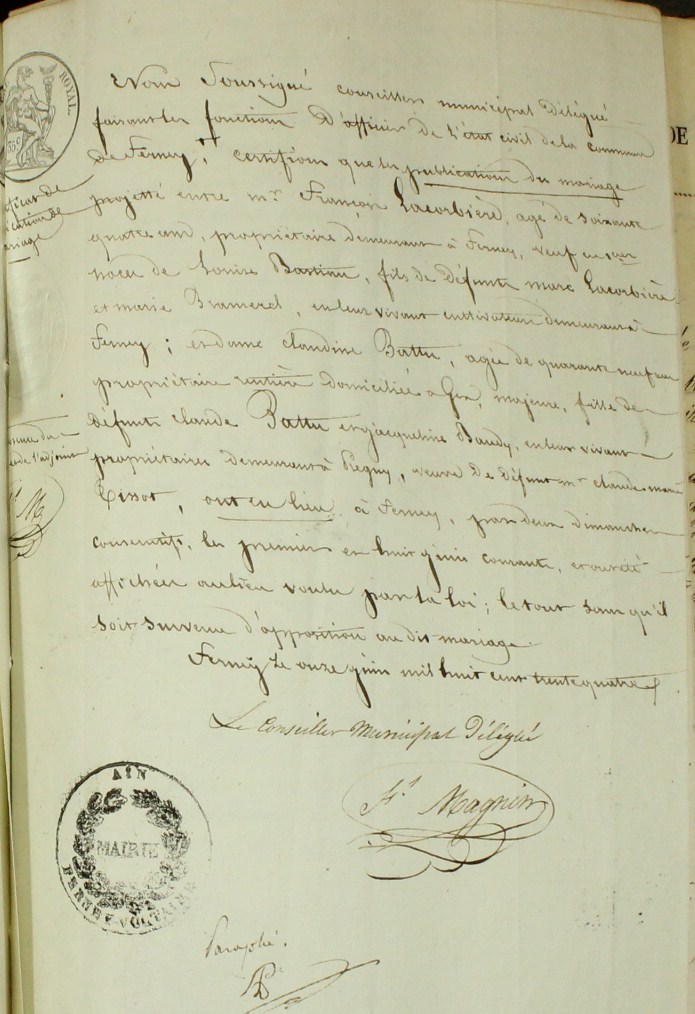 ROYAL.
Nous Soussigné conseiller municipal Délégué
faisant les fonctions D'officier de l'état civil de la commune
de Ferney, certifions que les publications du mariage
projetté entre mr. François Lacorbière, agé de soixante
quatre ans, propriétaire demeurant à Ferney, veuf en 1eres
noces de Louise Bastian, fils de Défunts marc Lacorbière
et marie Brameret, en leur vivant cultivateurs demeurant à
Ferney; et dame claudine Battu, agée de quarante neuf ans
propriétaire rentière Domiciliée à Gex, majeure, fille de
défunts claude Battu et jacqueline Baudy, en leur vivant
propriétaires demeurant à Pregny, veuve De Défunt mr. claude marie
Tissot, ont eu lieu à Ferney, par deux dimanches
consecutifs, les premier et huit juin courant, et ont été
affichées au lieu voulu par la loi; le tout sans qu'il
soit survenu d'opposition au dit mariage.
Ferney le onze juin mil huit cent trente quatre
Le Conseiller Municipal Délégué
Magnin
AIN
MAIRIE
FERNEY-VOLTAIRE
Paraphé.
DE
cation de
mariage
de l'adjoint
M